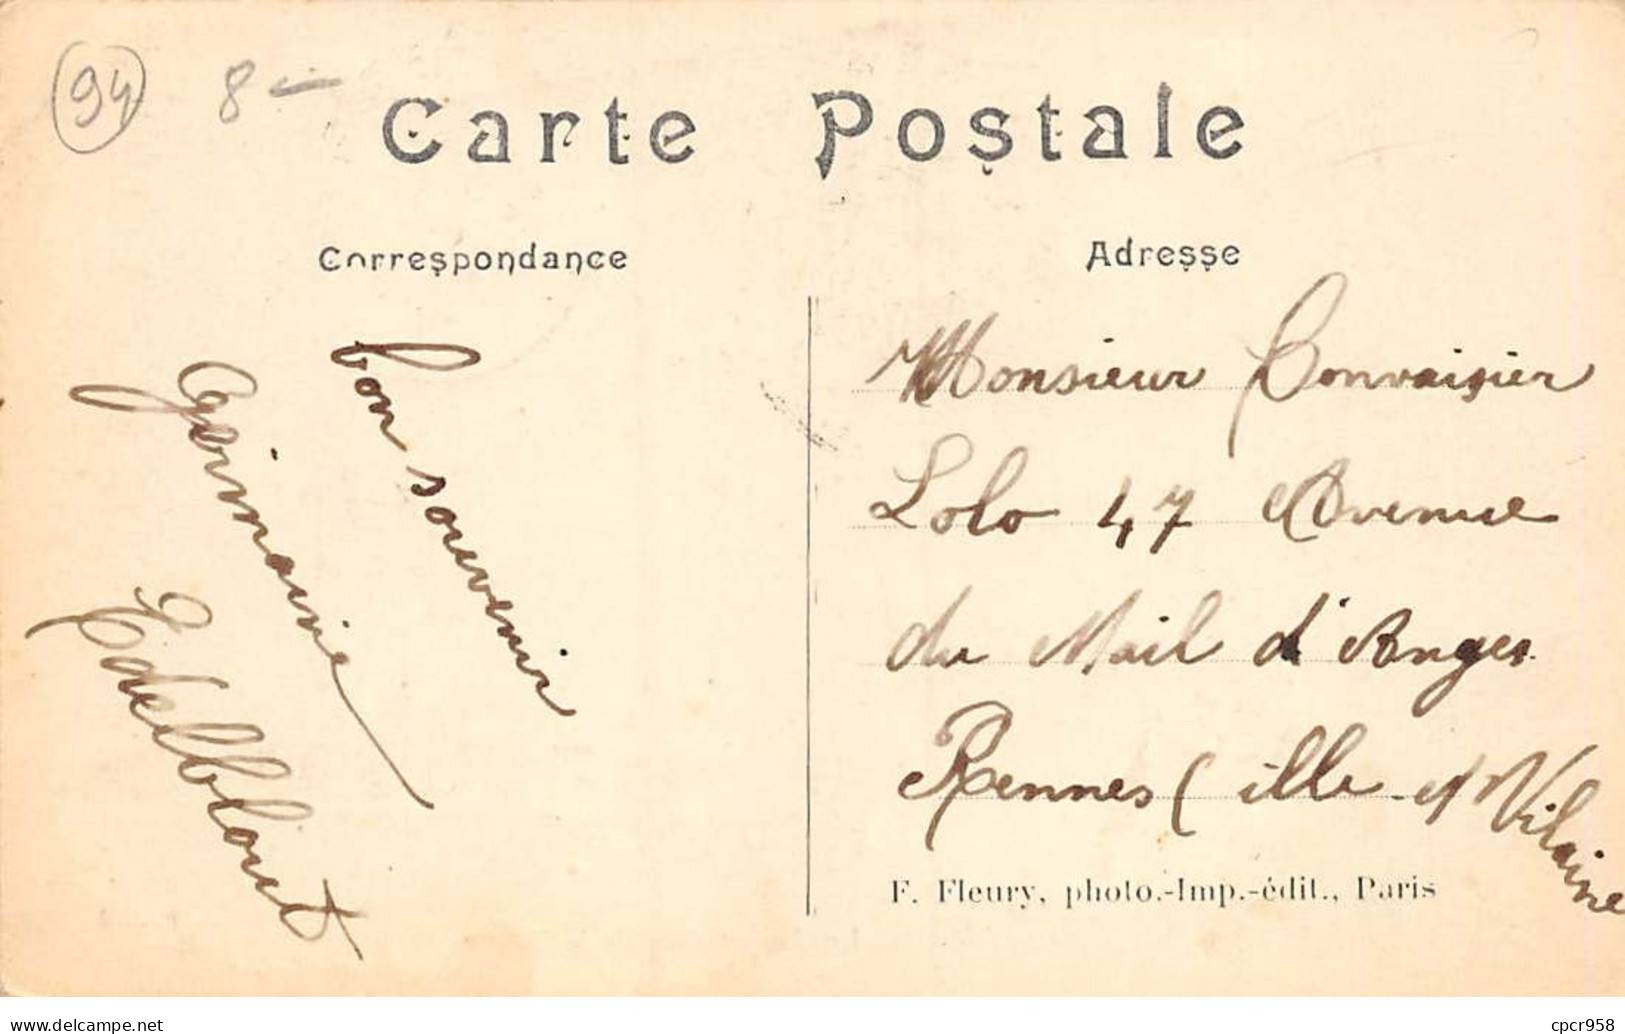 94 8 -
Carte Postale
Correspondance
Adresse
bon souvenir
Germaine
Edelblout
Monsieur Convaisier
Lolo 47 Avenue
du Mail d'Anges
Rennes (ille et Vilaine
F. Fleury, photo.-Imp.-édit., Paris
delcampe.net
cpcr958